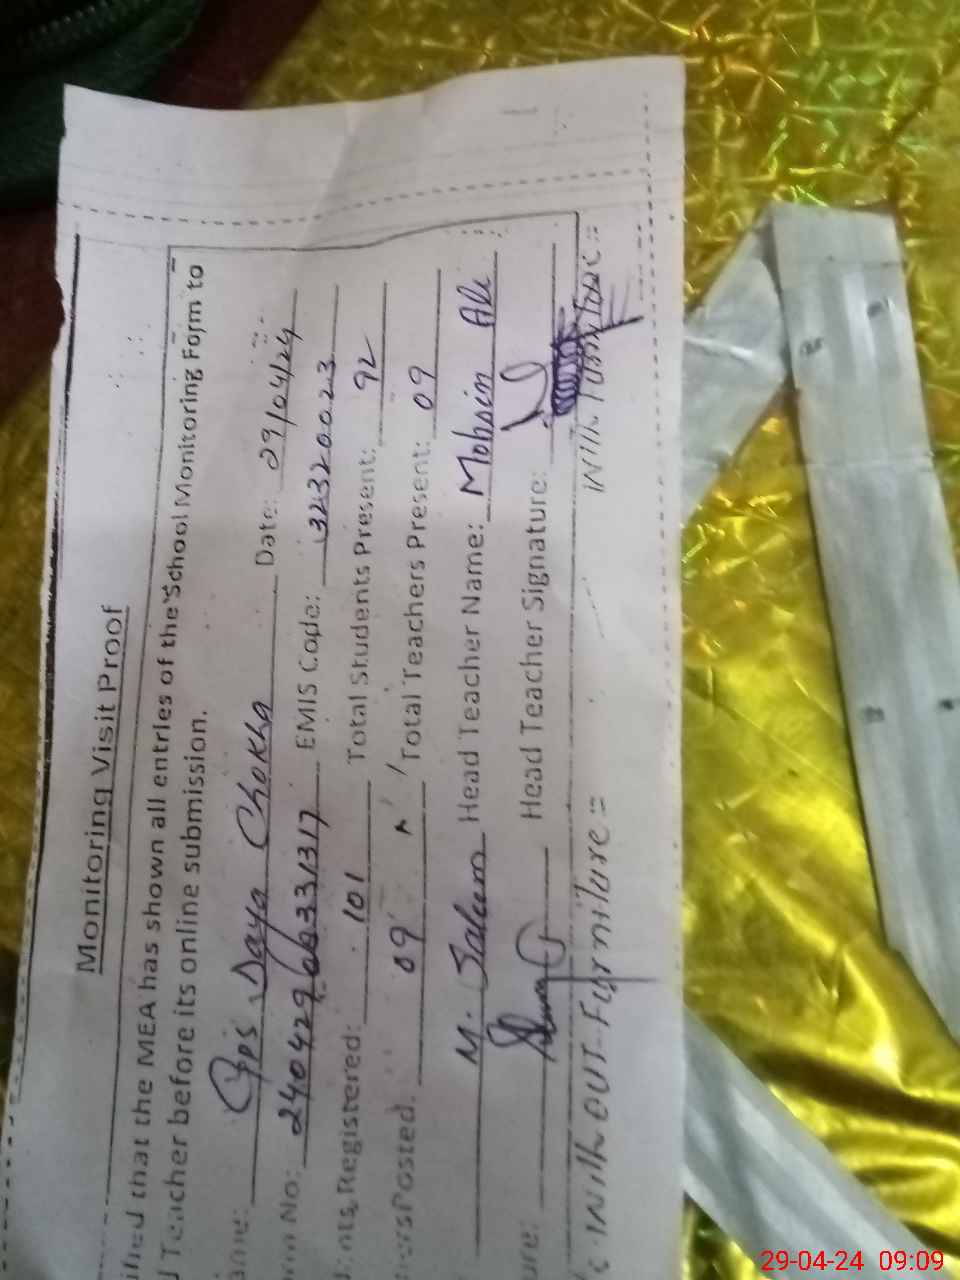 Monitoring Visit Proof
that the MEA has shown all entries of the School Monitoring Form to
Teacher before its online submission.
Gps Daya Chokha Date: 29/04/24
No: EMIS Code: 32320023
Registered: 101 Total Students Present: 92
Posted. 09 Total Teachers Present: 09
M. Salem Head Teacher Name: Mohsin Ali
Head Teacher Signature:
WithOUT-Furniture = With
29-04-24 09:09